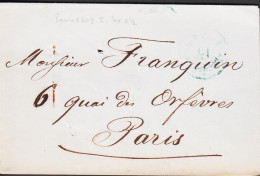 Monsieur Franquin
6 quai des Orfèvres
Paris